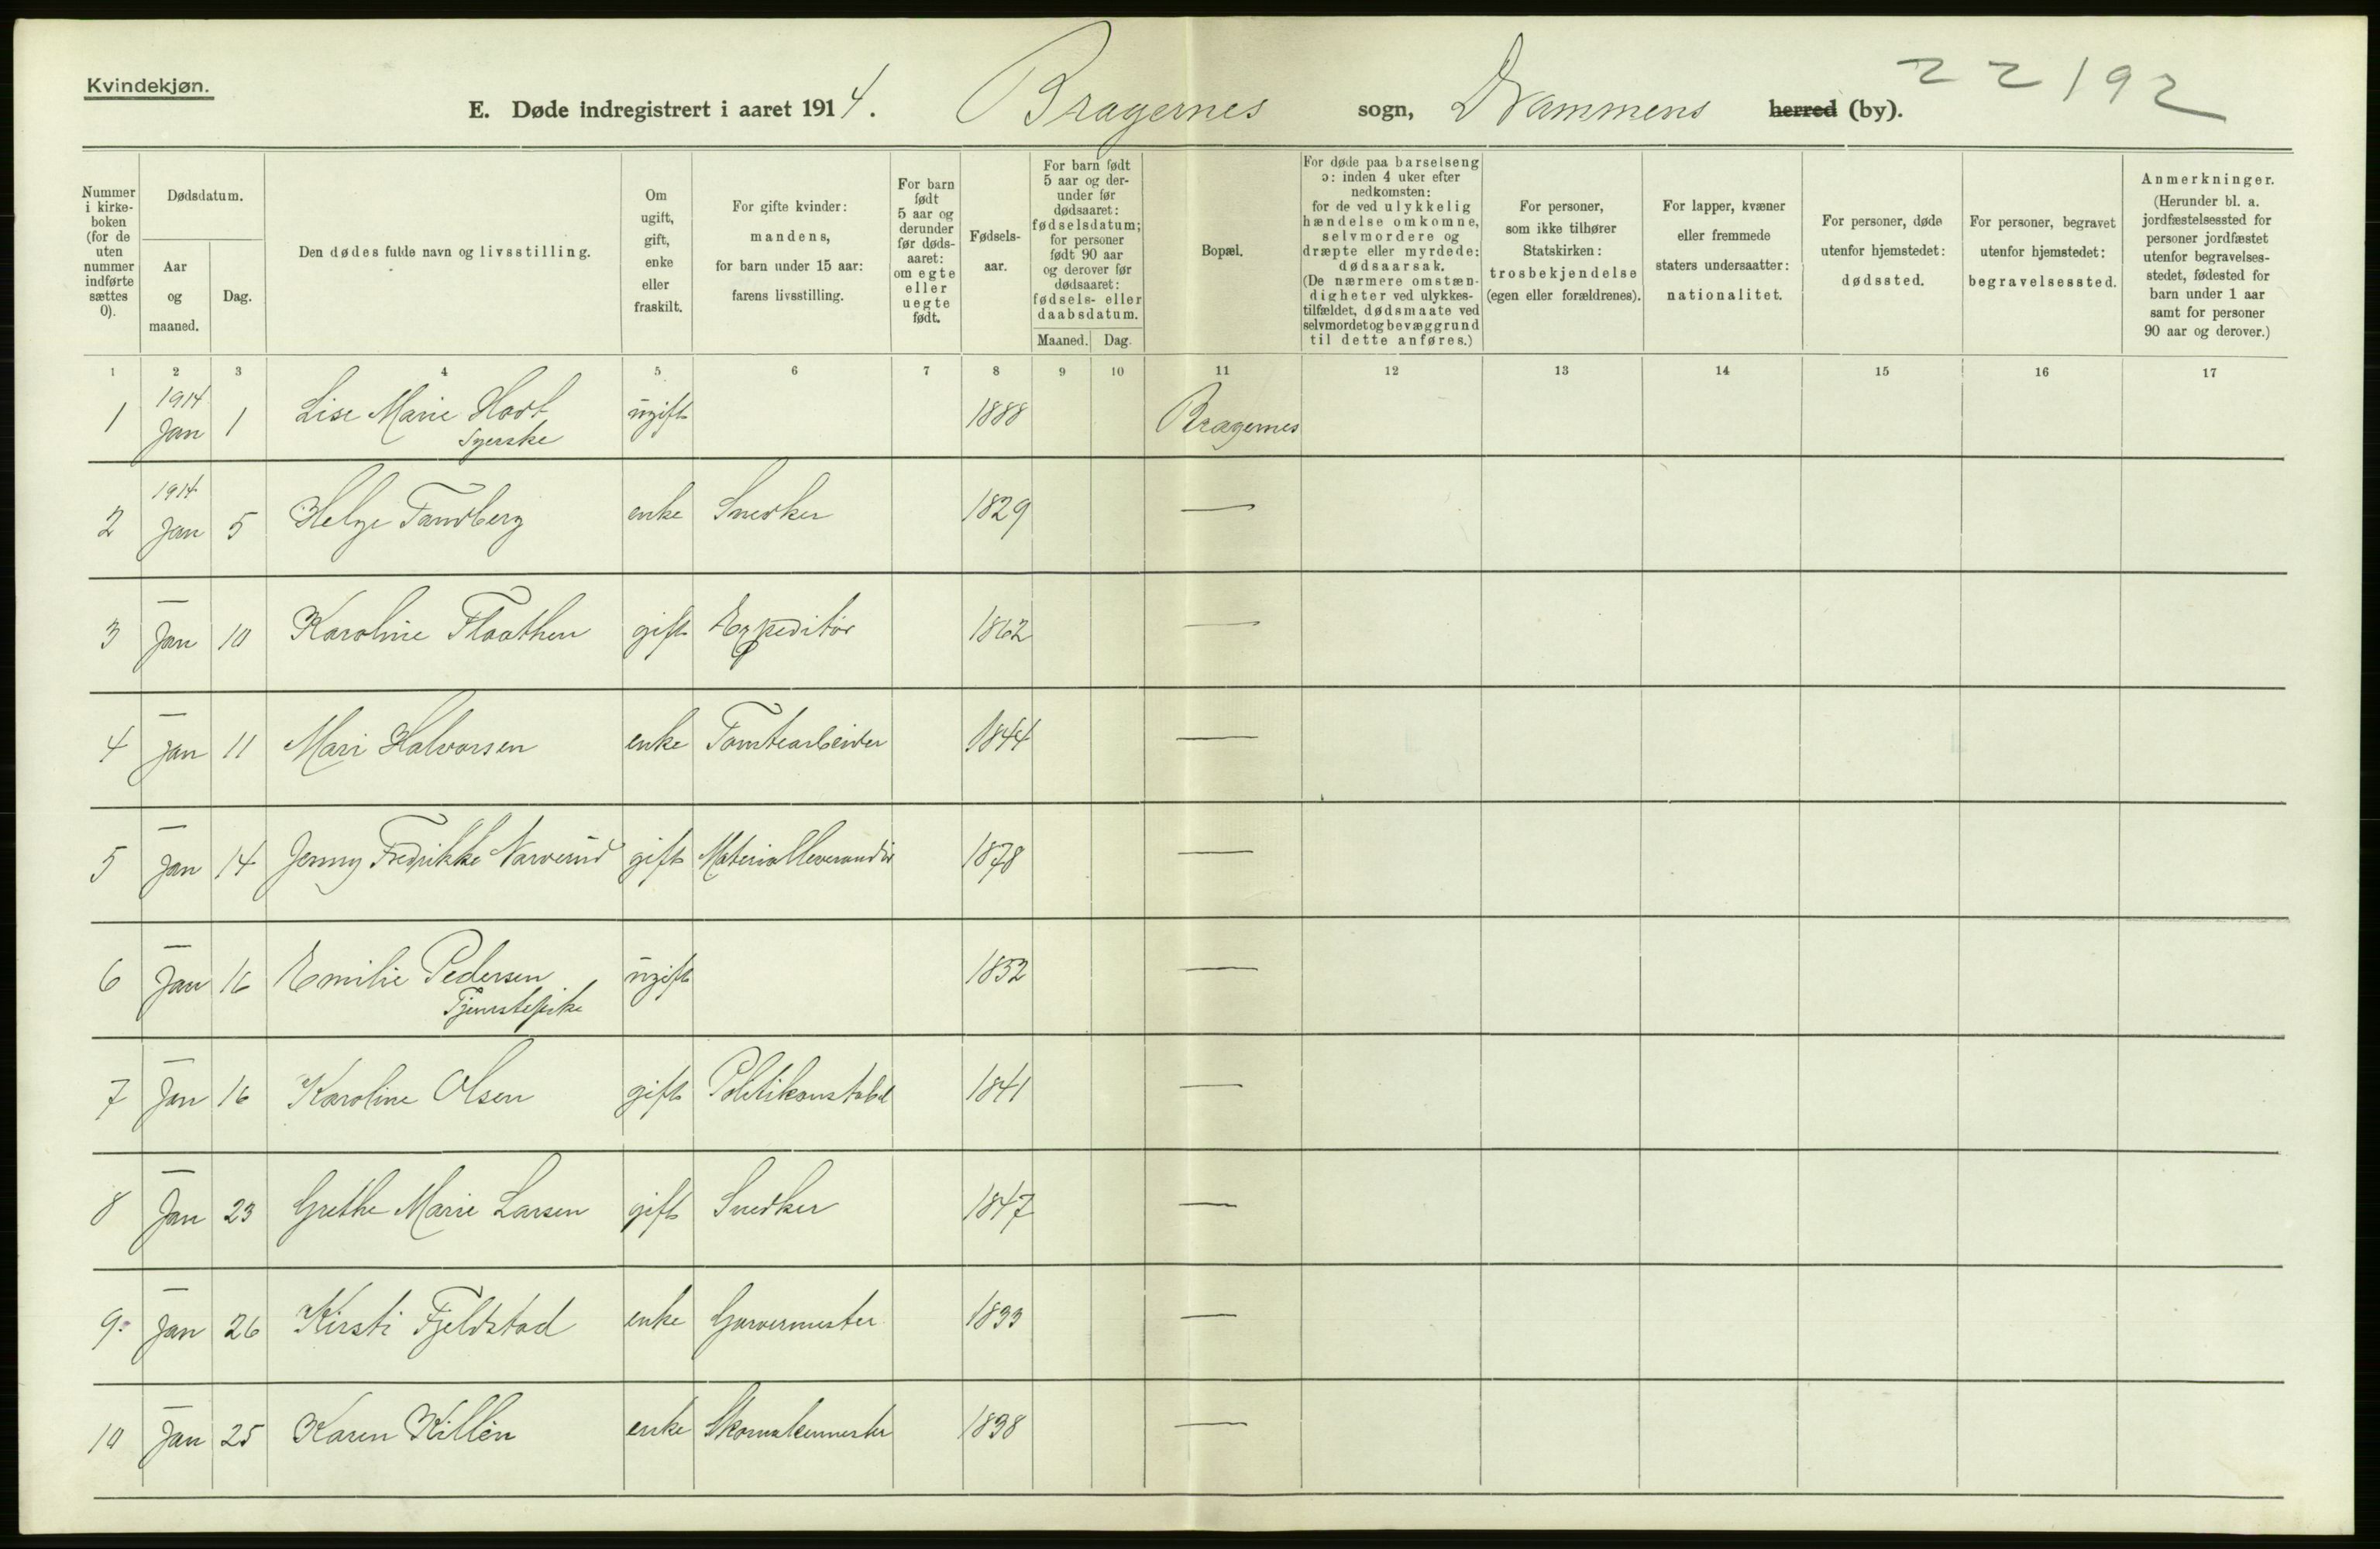 Kvindekjøn.
E. Døde indregistrert i aaret 1914. Bragernes sogn, Drammens herred (by). 22192
Nummer i kirke- boken (for de uten nummer indførte sættes 0).
Dødsdatum.
Aar og maaned.
Dag.
Den dødes fulde navn og livsstilling.
Om ugift, gift, enke eller fraskilt.
For gifte kvinder: mandens, for barn under 15 aar: farens livsstilling.
For barn født 5 aar og derunder før døds- aaret: om egte eller uegte født.
Fødsels- aar.
For barn født 5 aar og der- under før dødsaaret: fødselsdatum; for personer født 90 aar og derover før dødsaaret: fødsels- eller daabsdatum.
Maaned. Dag.
Bopæl.
For døde paa barselseng ɔ: inden 4 uker efter nedkomsten: for de ved ulykkelig hændelse omkomne, selvmordere og dræpte eller myrdede: dødsaarsak. (De nærmere omstæn- digheter ved ulykkes- tilfældet, dødsmaate ved selvmordet og bevæggrund til dette anføres.)
For personer, som ikke tilhører Statskirken: trosbekjendelse (egen eller forældrenes).
For lapper, kvæner eller fremmede staters undersaatter: nationalitet.
For personer, døde utenfor hjemstedet: dødssted.
For personer, begravet utenfor hjemstedet: begravelsessted.
Anmerkninger. (Herunder bl. a. jordfæstelsessted for personer jordfæstet utenfor begravelses- stedet, fødested for barn under 1 aar samt for personer 90 aar og derover.)
1 2 3 4 5 6 7 8 9 10 11 12 13 14 15 16 17
1 1914 Jan 1 Lise Marie Hovt ugift 1888 Bragernes
Syerske
2 1914 Jan 5 Helge Tandberg enke Snedker 1829 —
3 — Jan 10 Karoline Flaathen gift Expeditør 1862 —
4 — Jan 11 Mari Halvorsen enke Tomtearbeider 1844 —
5 — Jan 14 Jenny Fredrikke Narverud gift Materialleverandør 1878 —
6 — Jan 16 Emilie Pedersen ugift 1852 —
Tjenestepike
7 — Jan 16 Karoline Olsen gift Politikonstabel 1841 —
8 — Jan 23 Grethe Marie Larsen gift Snedker 1847 —
9. — Jan 26 Kirsti Fjeldstad enke Garvermester 1833 —
10 — Jan 25 Karen Killén enke Skomakermester 1838 —